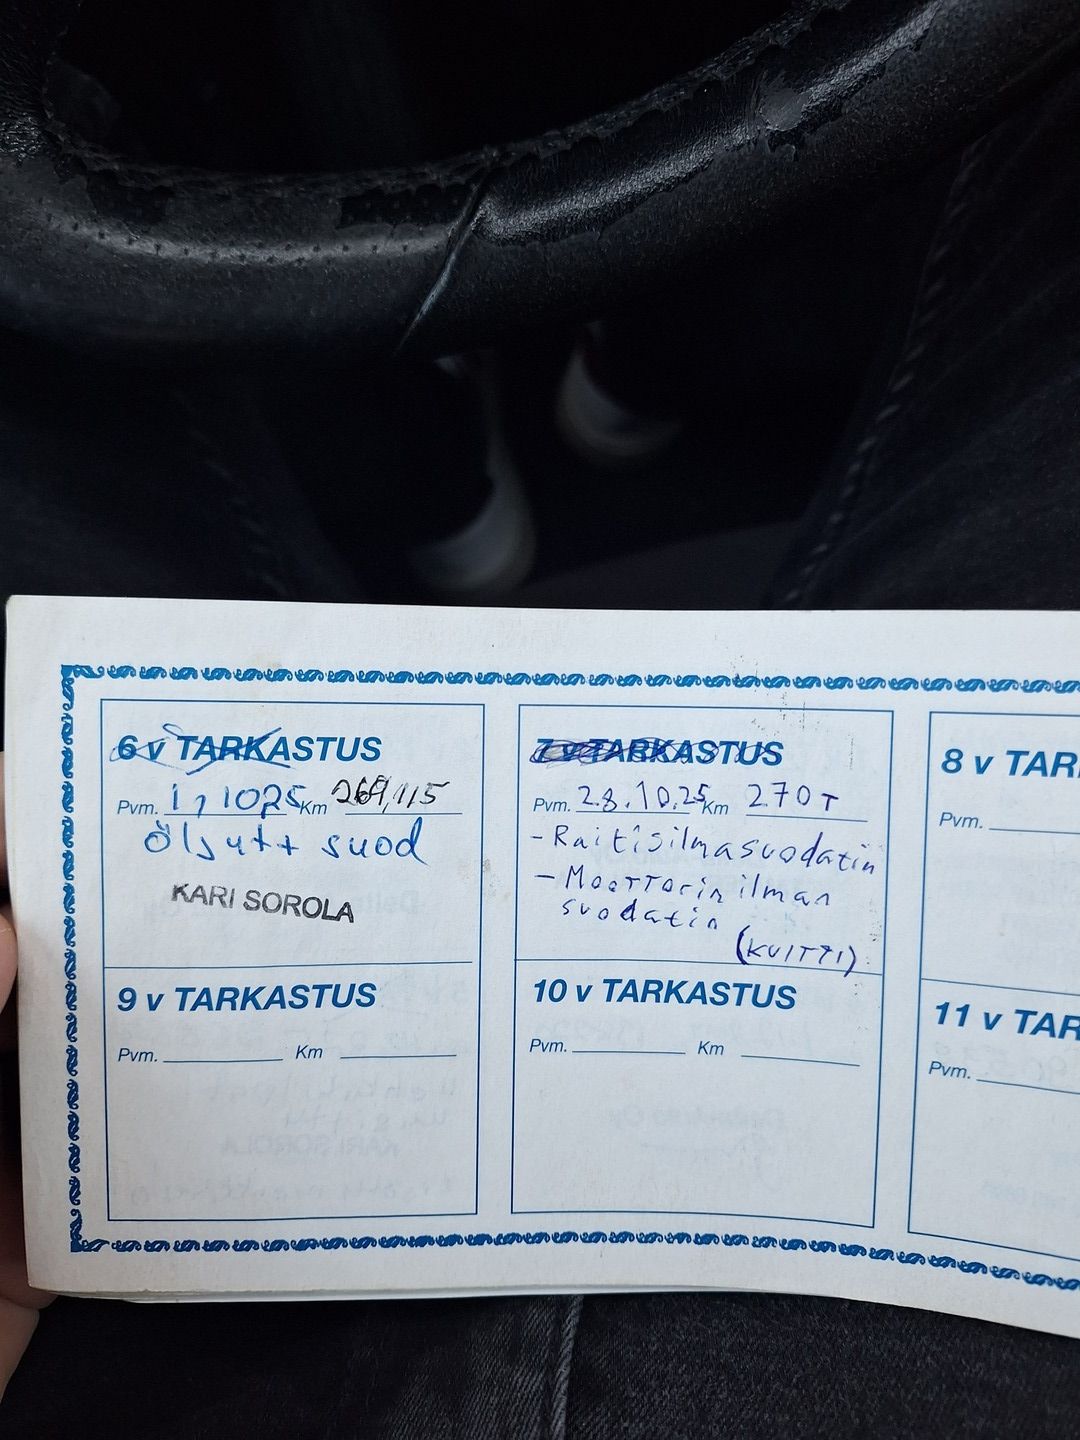 6 v TARKASTUS
Pvm. 1,1025 Km 269,115
Öljyt + suod
KARI SOROLA
7 v TARKASTUS
Pvm. 28.10.25 Km 270T
- Raitisilmasuodatin
- Moottorin ilman
suodatin
(KUITTI)
8 v TAR
Pvm.
9 v TARKASTUS
Pvm. Km
10 v TARKASTUS
Pvm. Km
11 v TAR
Pvm.